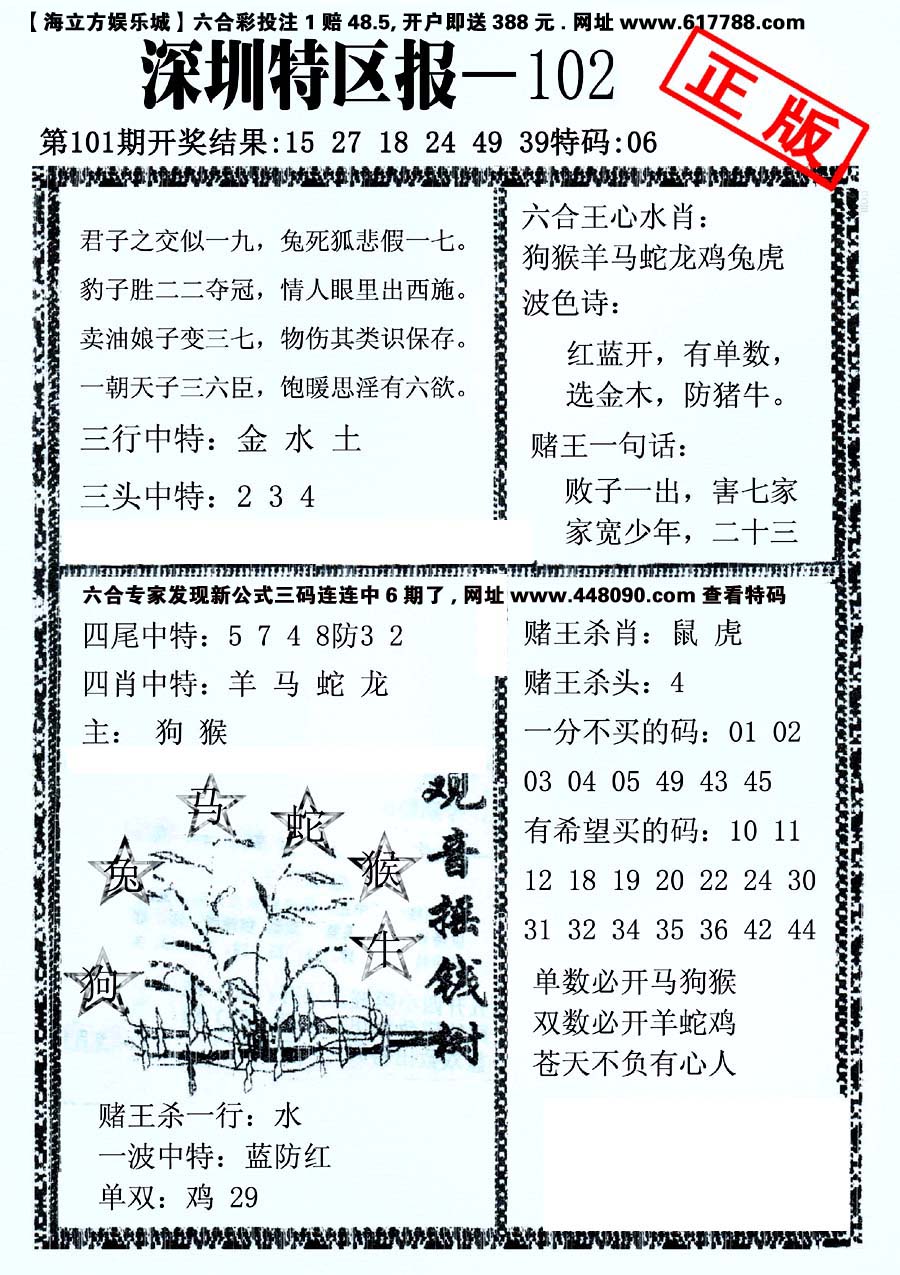 【海立方娱乐城】六合彩投注 1 赔 48.5, 开户即送 388 元 . 网址 www.617788.com
深圳特区报—102
正版
第101期开奖结果:15 27 18 24 49 39特码:06
君子之交似一九，兔死狐悲假一七。
豹子胜二二夺冠，情人眼里出西施。
卖油娘子变三七，物伤其类识保存。
一朝天子三六臣，饱暖思淫有六欲。
三行中特：金 水 土
三头中特：2 3 4
六合王心水肖：
狗猴羊马蛇龙鸡兔虎
波色诗：
红蓝开，有单数，
选金木，防猪牛。
赌王一句话：
败子一出，害七家
家宽少年，二十三
六合专家发现新公式三码连连中 6 期了 , 网址 www.448090.com 查看特码
四尾中特：5 7 4 8防3 2
四肖中特：羊 马 蛇 龙
主： 狗 猴
马
蛇
兔
猴
牛
狗
观音摇钱树
赌王杀一行：水
一波中特：蓝防红
单双：鸡 29
赌王杀肖：鼠 虎
赌王杀头：4
一分不买的码：01 02
03 04 05 49 43 45
有希望买的码：10 11
12 18 19 20 22 24 30
31 32 34 35 36 42 44
单数必开马狗猴
双数必开羊蛇鸡
苍天不负有心人